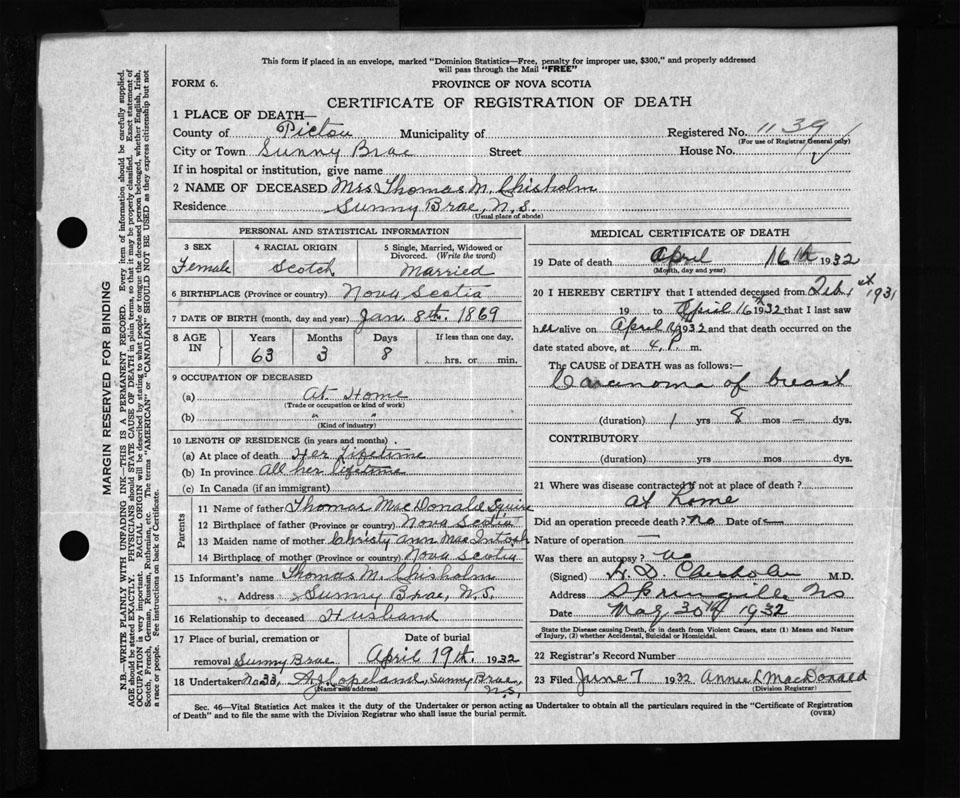 This form if placed in an envelope, marked "Dominion Statistics—Free, penalty for improper use, $300," and properly addressed
will pass through the Mail "FREE"
FORM 6.
PROVINCE OF NOVA SCOTIA
CERTIFICATE OF REGISTRATION OF DEATH
1 PLACE OF DEATH—
County of Pictou Municipality of Registered No. 1139
(For use of Registrar General only)
City or Town Sunny Brae Street House No.
If in hospital or institution, give name
2 NAME OF DECEASED Mrs Thomas M. Chisholm
Residence Sunny Brae, N.S.
(Usual place of abode)
MARGIN RESERVED FOR BINDING
N.B.—WRITE PLAINLY WITH UNFADING INK—THIS IS A PERMANENT RECORD. Every item of information should be carefully supplied.
AGE should be stated EXACTLY. PHYSICIANS should STATE CAUSE OF DEATH in plain terms, so that it may be properly classified. Exact statement of
OCCUPATION is very important. RACIAL ORIGIN will be described by stating to what people or tongue the deceased person belonged, whether English, Irish,
Scotch, French, German, Russian, Ruthenian, etc. The terms "AMERICAN" or "CANADIAN" SHOULD NOT BE USED as they express citizenship but not
a race or people. See instructions on back of Certificate.
PERSONAL AND STATISTICAL INFORMATION
3 SEX
Female
4 RACIAL ORIGIN
Scotch
5 Single, Married, Widowed or
Divorced. (Write the word)
Married
6 BIRTHPLACE (Province or country) Nova Scotia
7 DATE OF BIRTH (month, day and year) Jan. 8th. 1869
8 AGE
IN
Years Months Days If less than one day,
63 3 8 hrs. or min.
9 OCCUPATION OF DECEASED
(a) At Home
(Trade or occupation or kind of work)
(b) " "
(Kind of industry)
10 LENGTH OF RESIDENCE (in years and months)
(a) At place of death Her Lifetime
(b) In province All her lifetime
(c) In Canada (if an immigrant)
Parents
11 Name of father Thomas MacDonald Squire
12 Birthplace of father (Province or country) Nova Scotia
13 Maiden name of mother Christy Ann MacIntosh
14 Birthplace of mother (Province or country) Nova Scotia
15 Informant's name Thomas M. Chisholm
Address Sunny Brae, N.S.
16 Relationship to deceased Husband
17 Place of burial, cremation or Date of burial
removal Sunny Brae April 19th. 1932
18 Undertaker No 33, Copeland, Sunny Brae,
(Name and address) N.S.
MEDICAL CERTIFICATE OF DEATH
19 Date of death April 16th 1932
(Month, day and year)
20 I HEREBY CERTIFY that I attended deceased from Feb 1st 1931
19 to April 16th 1932 that I last saw
her alive on April 1932 and that death occurred on the
date stated above, at 4 P. m.
The CAUSE OF DEATH was as follows:—
Carcinoma of breast
(duration) 1 yrs 8 mos — dys.
CONTRIBUTORY
(duration) yrs. mos. dys.
21 Where was disease contracted if not at place of death?
at home
Did an operation precede death? no Date of —
Nature of operation —
Was there an autopsy? no
(Signed) Chisholm M.D.
Address Springville NS
Date May 30th 1932
State the Disease causing Death, or in death from Violent Causes, state (1) Means and Nature
of Injury, (2) whether Accidental, Suicidal or Homicidal.
22 Registrar's Record Number
23 Filed June 7 1932 Annie L MacDonald
(Division Registrar)
Sec. 46—Vital Statistics Act makes it the duty of the Undertaker or person acting as Undertaker to obtain all the particulars required in the "Certificate of Registration
of Death" and to file the same with the Division Registrar who shall issue the burial permit.
(OVER)